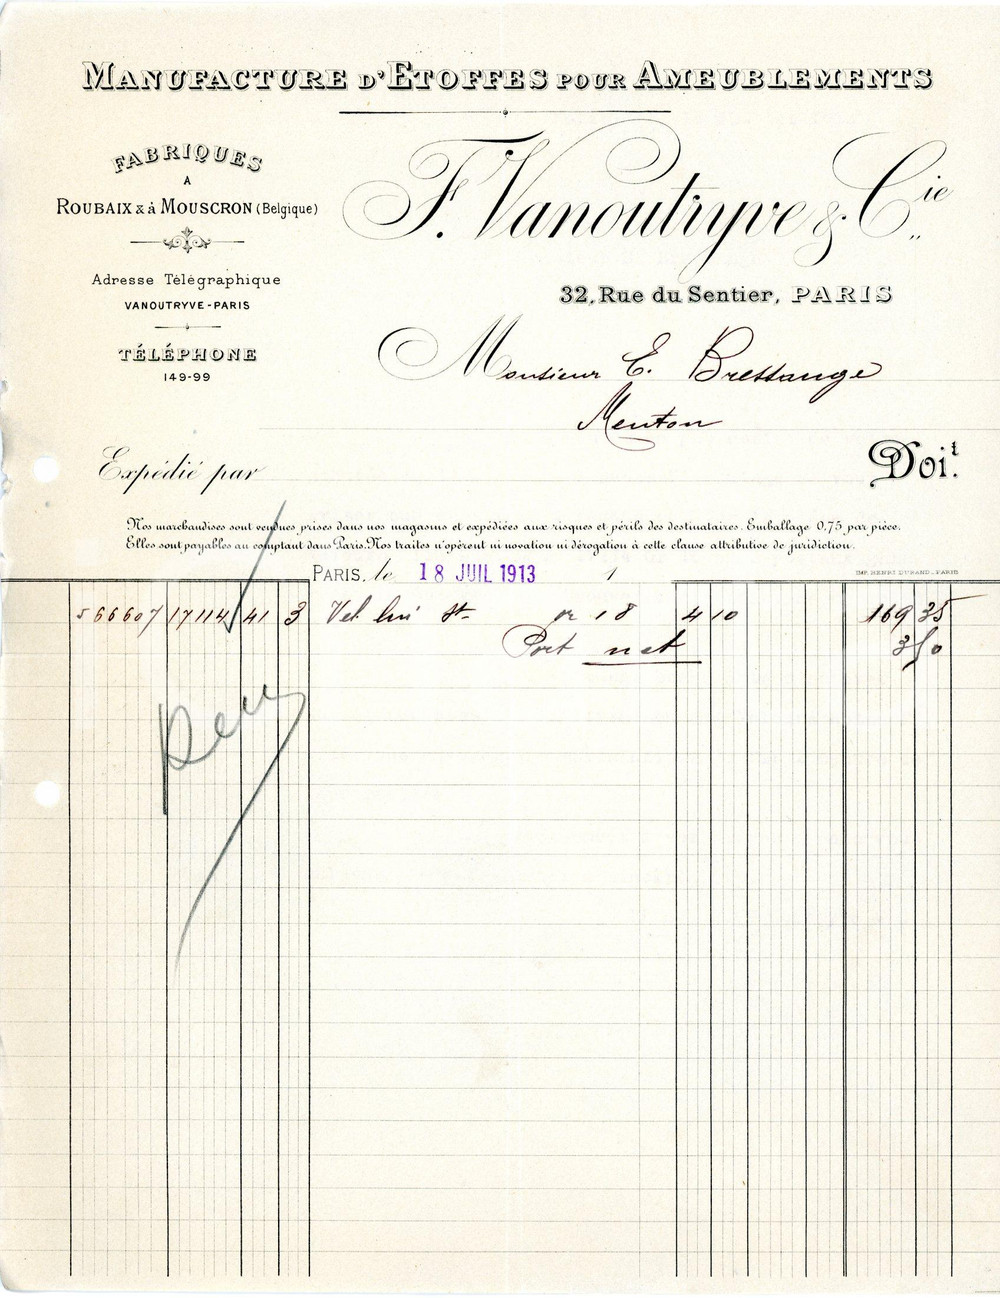 MANUFACTURE D'ETOFFES POUR AMEUBLEMENTS
FABRIQUES
A
ROUBAIX & à MOUSCRON (Belgique)
Adresse Télégraphique
VANOUTRYVE-PARIS
TÉLÉPHONE
149-99
F. Vanoutryve & Cie
32, Rue du Sentier, PARIS
Monsieur E. Bressange
Menton
Expédié par
Doit.
Nos marchandises sont vendues prises dans nos magasins et expédiées aux risques et périls des destinataires. Emballage 0,75 par pièce.
Elles sont payables au comptant dans Paris. Nos traites n'opèrent ni novation ni dérogation à cette clause attributive de juridiction.
IMP. HENRI DURAND_PARIS
PARIS, le 18 JUIL 1913 1
566607 17114 41 3 Vel. or 18 4 10 169 35
Port net 3 50